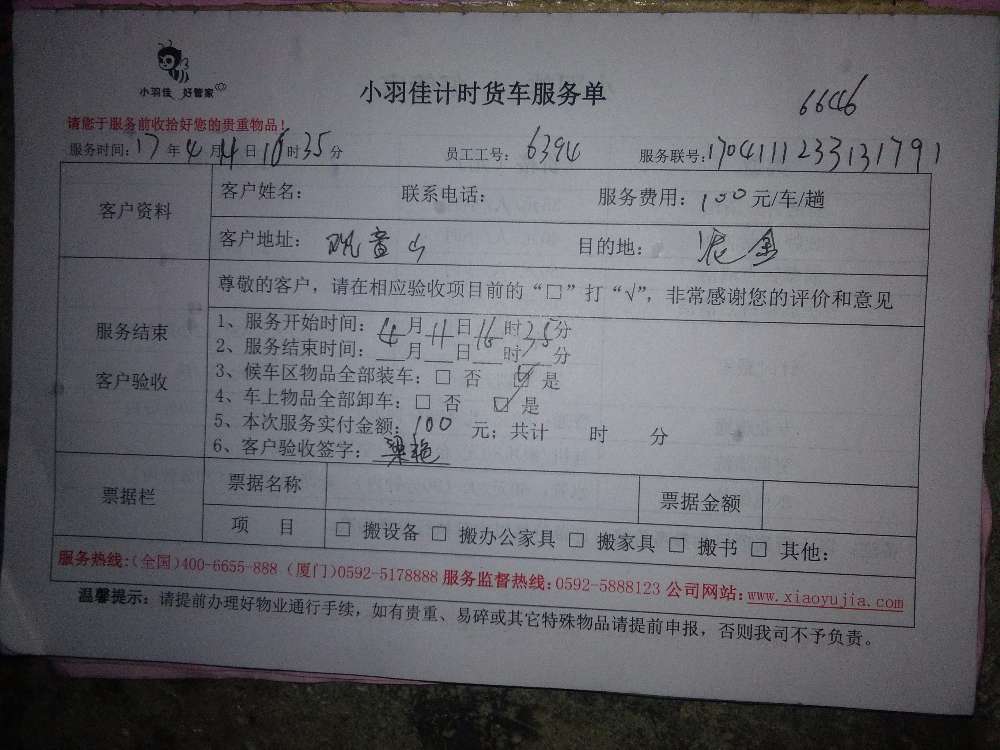 小羽佳 好管家
小羽佳计时货车服务单
6646
请您于服务前收拾好您的贵重物品！
服务时间：17年4月11日16时35分 员工工号：6394 服务联号：1704111233131791
客户资料
客户姓名： 联系电话： 服务费用：100元/车/趟
客户地址：观音山 目的地：泥金
服务结束
客户验收
尊敬的客户，请在相应验收项目前的“□”打“√”，非常感谢您的评价和意见
1、服务开始时间：4月11日16时35分
2、服务结束时间：___月___日___时___分
3、候车区物品全部装车：□ 否 ☑ 是
4、车上物品全部卸车：□ 否 ☑ 是
5、本次服务实付金额：100 元；共计 时 分
6、客户验收签字：梁艳
票据栏
票据名称 票据金额
项 目 □ 搬设备 □ 搬办公家具 □ 搬家具 □ 搬书 □ 其他：
服务热线：(全国)400-6655-888 (厦门)0592-5178888 服务监督热线：0592-5888123 公司网站：www.xiaoyujia.com
温馨提示：请提前办理好物业通行手续，如有贵重、易碎或其它特殊物品请提前申报，否则我司不予负责。